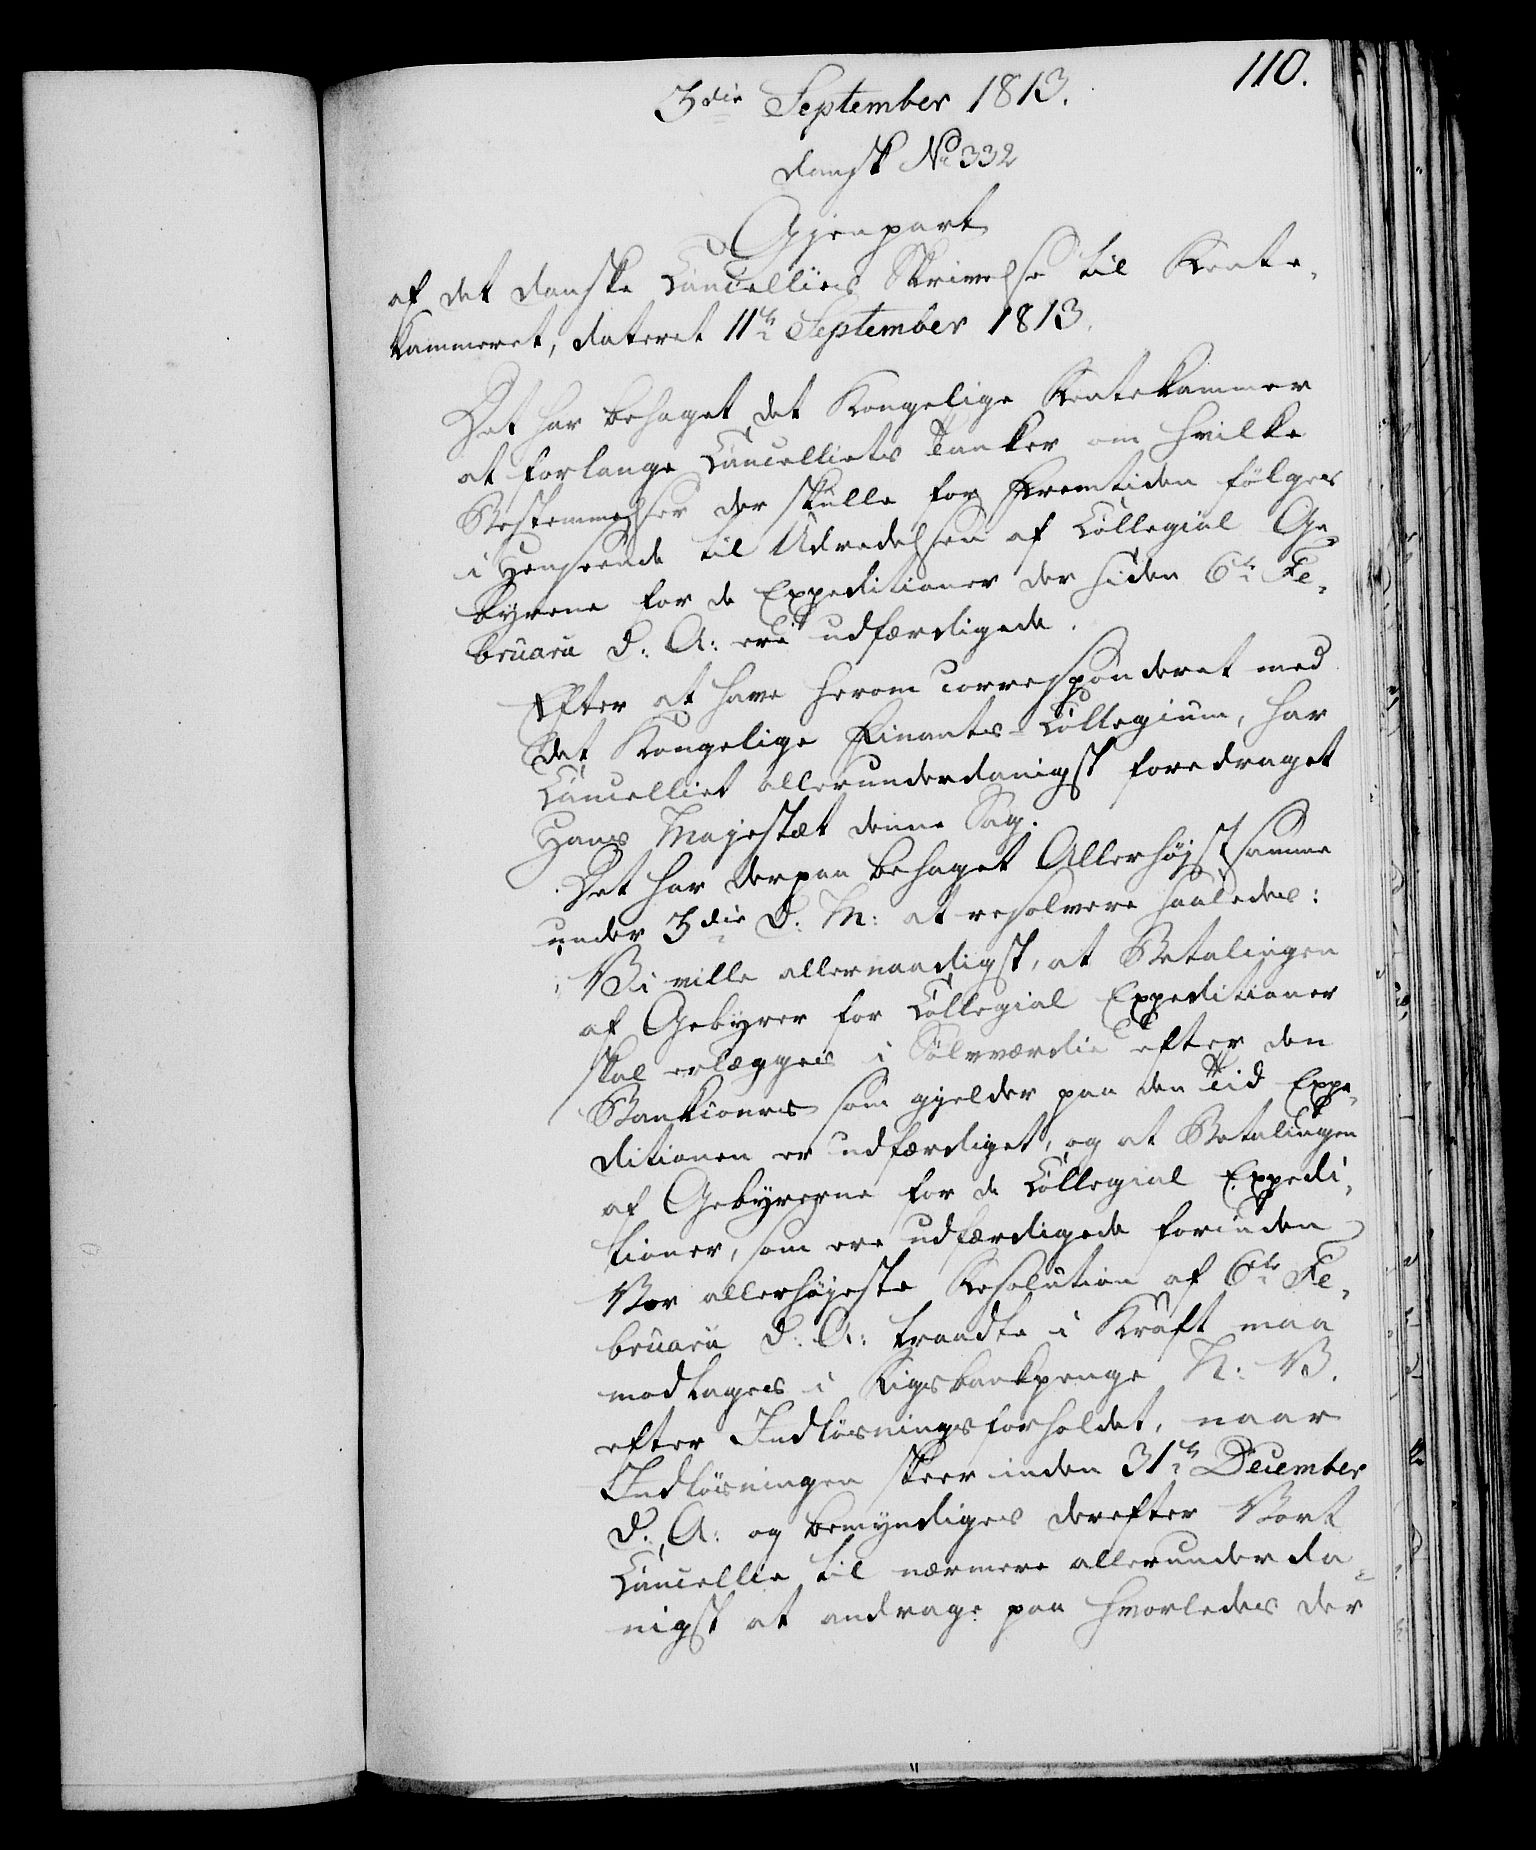 110.
3die September 1813.
dansk No 332
Gjenpart
af det danske Cancellies Skrivelse til Rente-
kammeret, dateret 11te September 1813.
Det har behaget det Kongelige Rentekammer
at forlange Cancelliets Tanker om hvilke
Bestemmelser der skulle for Fremtiden følges
i Henseende til Udredelsen af Collegial Ge-
byrene for de Expeditioner der siden 6te Fe-
bruarii d: A: ere udfærdigede.
Efter at have herom correspönderet med
det Kongelige Finants-Collegium, har
Cancelliet allerunderdanigst foredraget
Hans Majestæt denne Sag.
Det har derpaa behaget Allerhøjstsamme
under 3die d: M: at resolvere saaledes:
Vi ville allernaadigst, at Betalingen
af Gebyrer for Collegial Expeditioner
skal erlægges i Sølvværdie efter den
Bankcours som gjelder paa den Tid Expe-
ditionen er udfærdiget, og at Betalingen
af Gebyrerne for de Collegial Expedi-
tioner, som ere udfærdigede forinden
Vor allerhøjeste Resolution af 6te Fe-
bruarii d: A: traadte i Kraft maa
modtages i Rigsbankpenge N: V.
efter Indløsningsforholdet, naar
Indløsningen skeer inden 31te December
d: A: og bemyndiges derefter Vort
Cancellie til nærmere allerunderda-
nigst at andrage paa hvorledes der